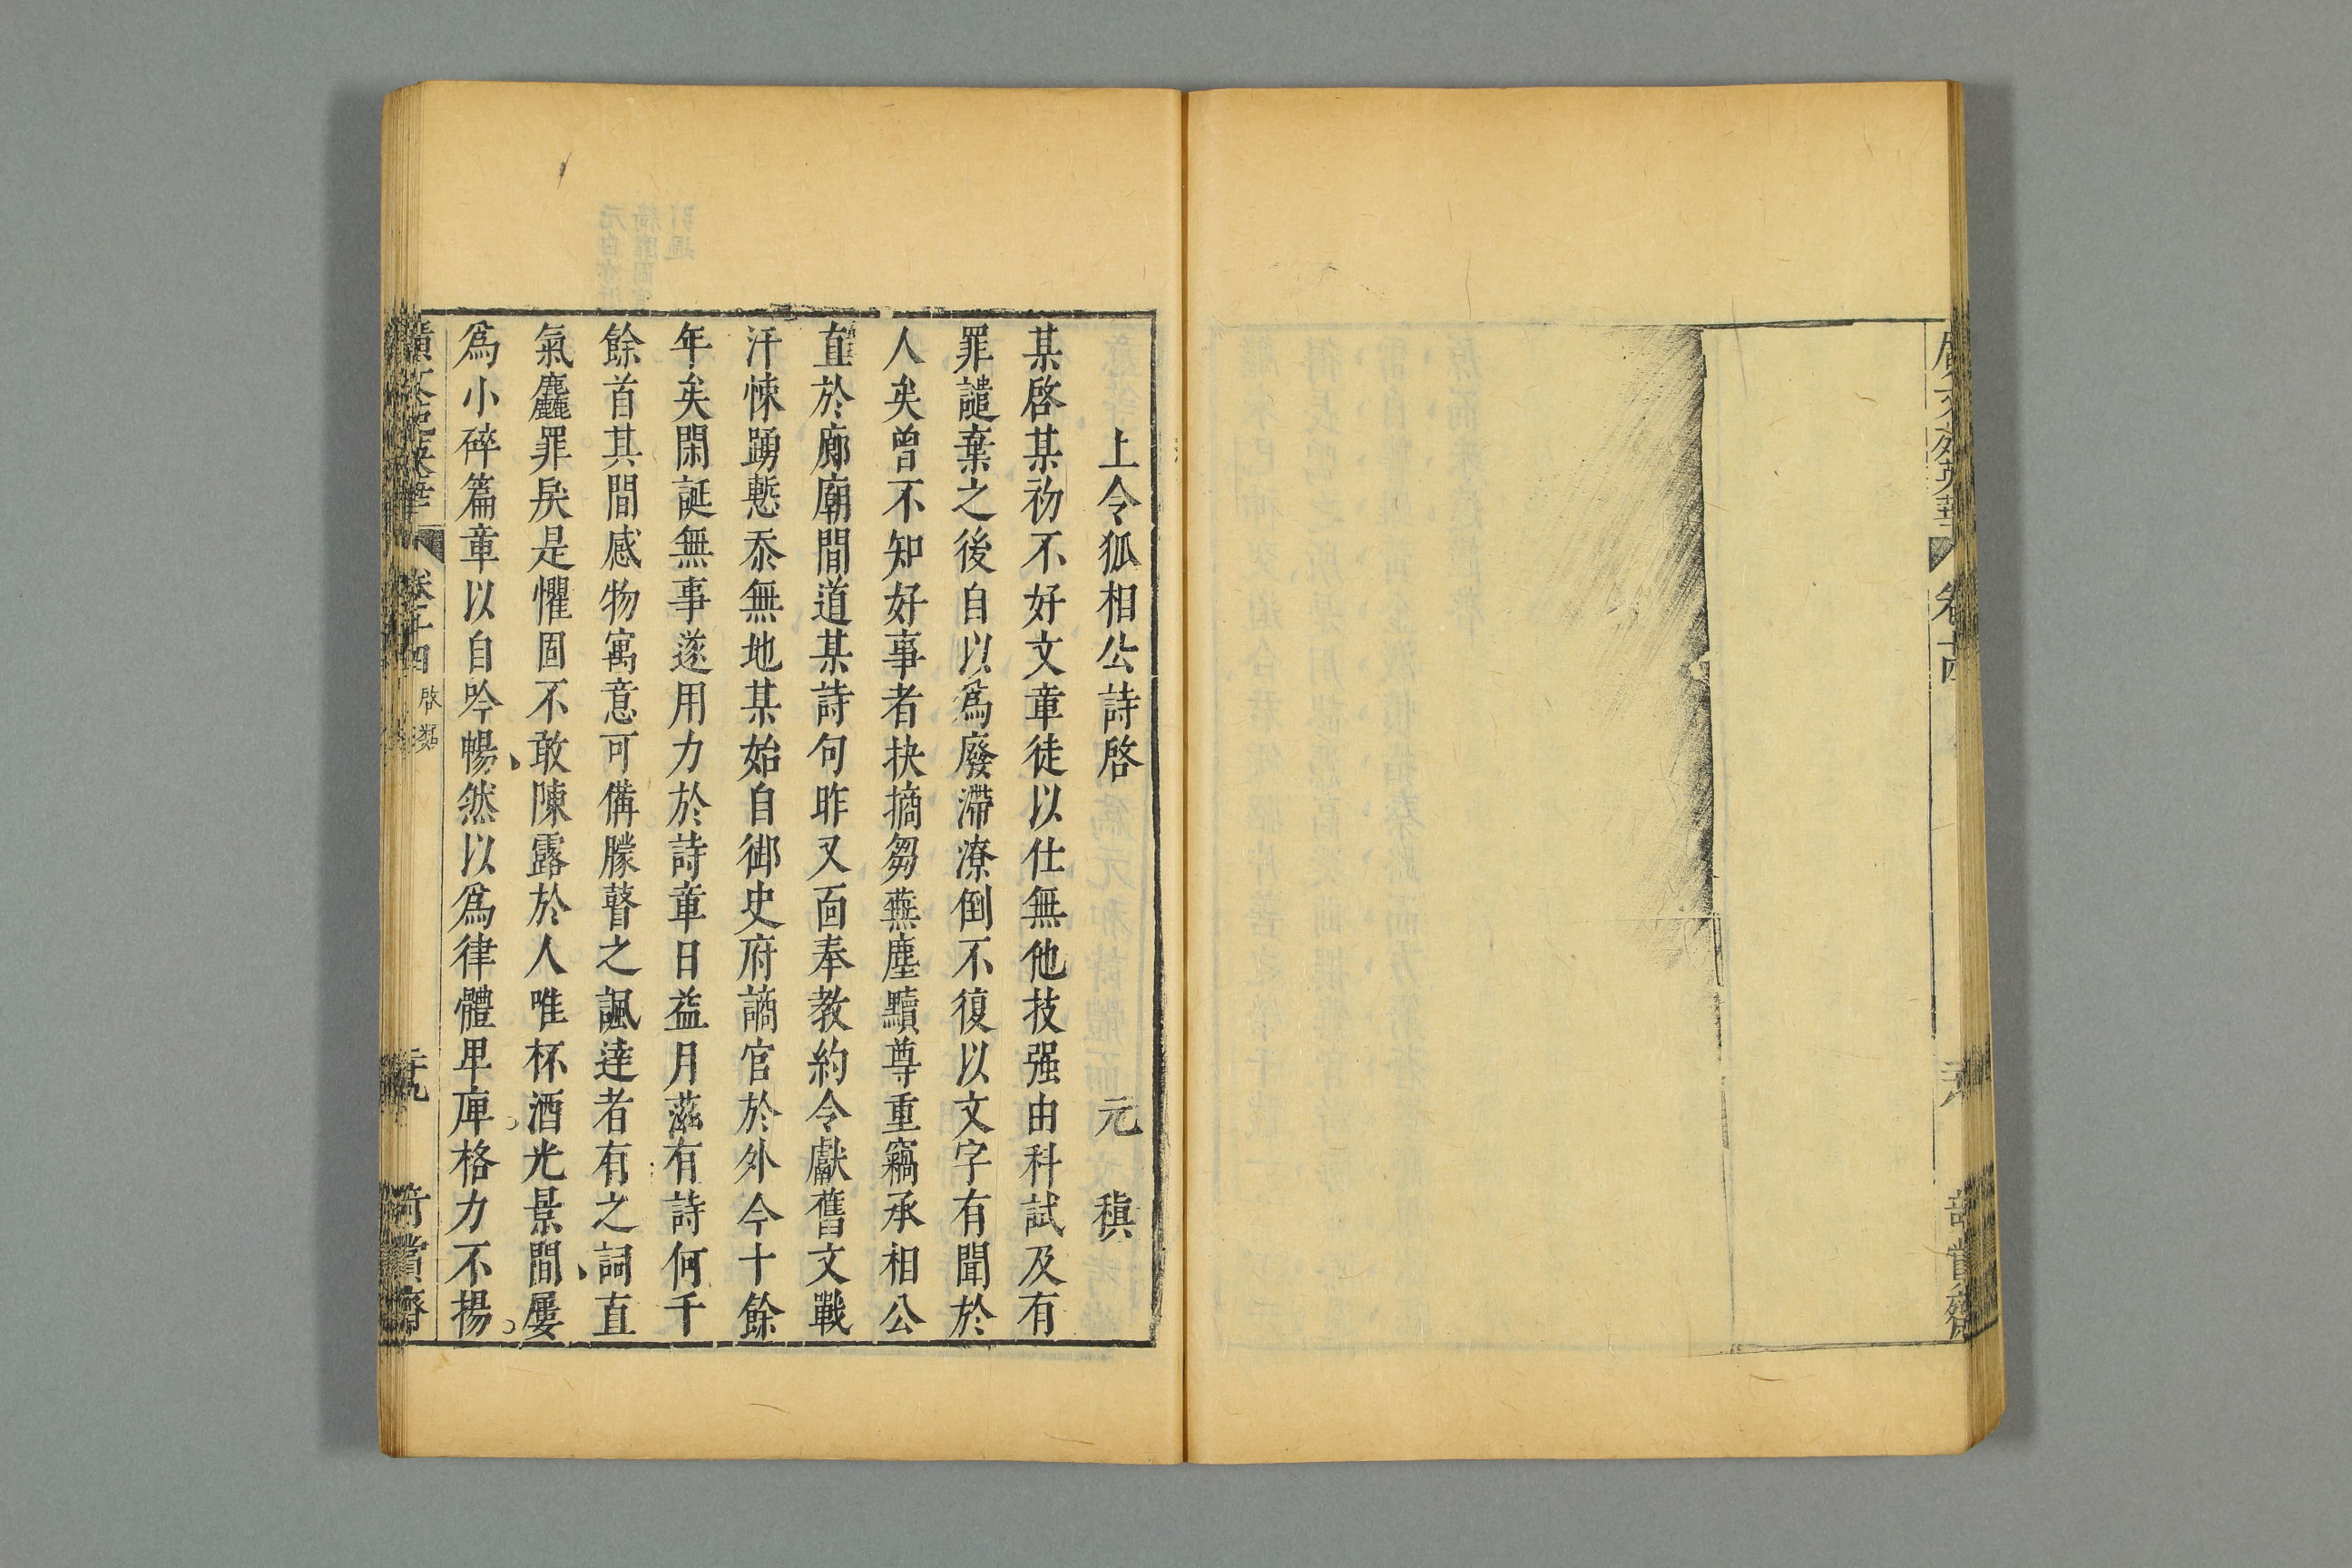 上令狐相公詩啓 元稹
某啓某初不好文章徒以仕無他技强由科試及有
罪譴棄之後自以爲廢滯潦倒不復以文字有聞於
人矣曾不知好事者抉摘芻蕪塵黷尊重竊承相公
直於廊廟間道某詩句昨又面奉教約令獻舊文戰
汗悚踴慙忝無地某始自御史府謫官於外今十餘
年矣閑誕無事遂用力於詩章日益月滋有詩何千
餘首其間感物寓意可備矇瞽之諷達者有之詞直
氣麤罪戾是懼固不敢陳露於人唯杯酒光景間屢
爲小碎篇章以自吟暢然以爲律體卑庳格力不揚
廣文苑英華 卷二十四 啓類 二十九